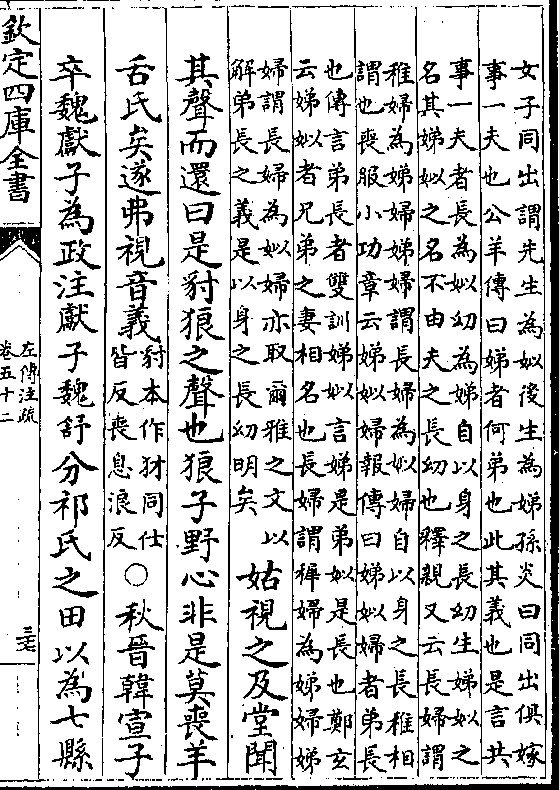 女子同出謂先生為姒後生為娣孫炎曰同出俱嫁
事一夫也公羊傳曰娣者何弟也此其義也是言共
事一夫者長為姒幼為娣自以身之長幼生娣姒之
名其娣姒之名不由夫之長幼也釋親又云長婦謂
稚婦為娣婦娣婦謂長婦為姒婦自以身之長稚相
謂也喪服小功章云娣姒婦報傳曰娣姒婦者弟長
也傳言弟長者雙訓娣姒言娣是弟姒是長也鄭玄
云娣姒者兄弟之妻相名也長婦謂稺婦為娣婦娣
婦謂長婦為姒婦亦取爾雅之文以
解弟長之義是以身之長幼明矣
姑視之及堂聞
其聲而還曰是豺狼之聲也狼子野心非是莫喪羊
舌氏矣遂弗視音義
豺本作犲同仕
皆反喪息浪反
○秋晉韓宣子
卒魏獻子為政注獻子魏舒分祁氏之田以為七縣
欽定四庫全書
左傳注疏
卷五十二
三十七